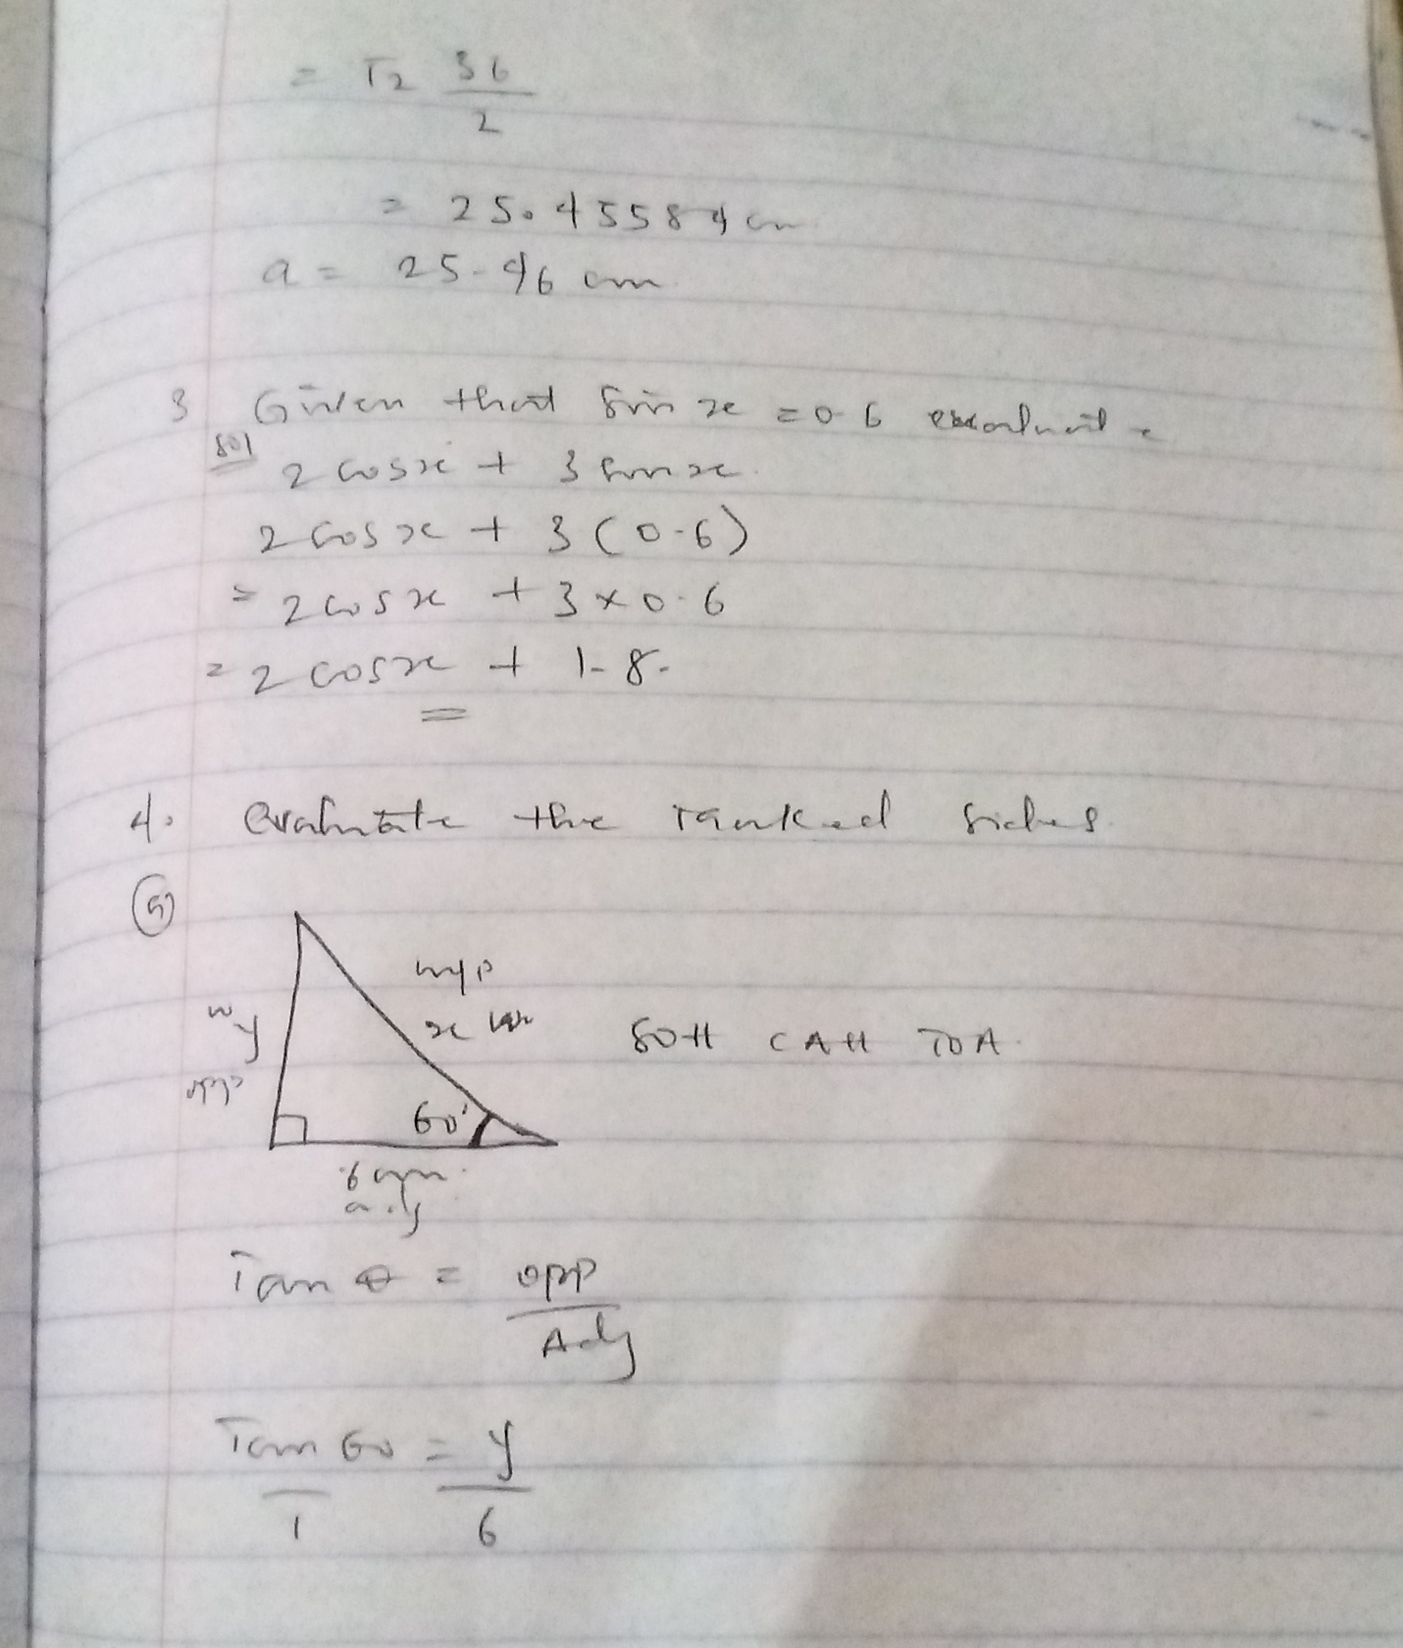 = √2 36
2
= 25.45584 cm
a = 25.46 cm
3 Given that Sin x = 0.6 evaluate
sol
2 cos x + 3 sin x.
2 cos x + 3 (0.6)
= 2 cos x + 3 × 0.6
= 2 cos x + 1.8.
4. evaluate the ranked sides
(a)
hyp
x
y
opp
SOH CAH TOA
60°
6 cm
adj
Tan θ = opp
Adj
Tan 60 = y
1 6